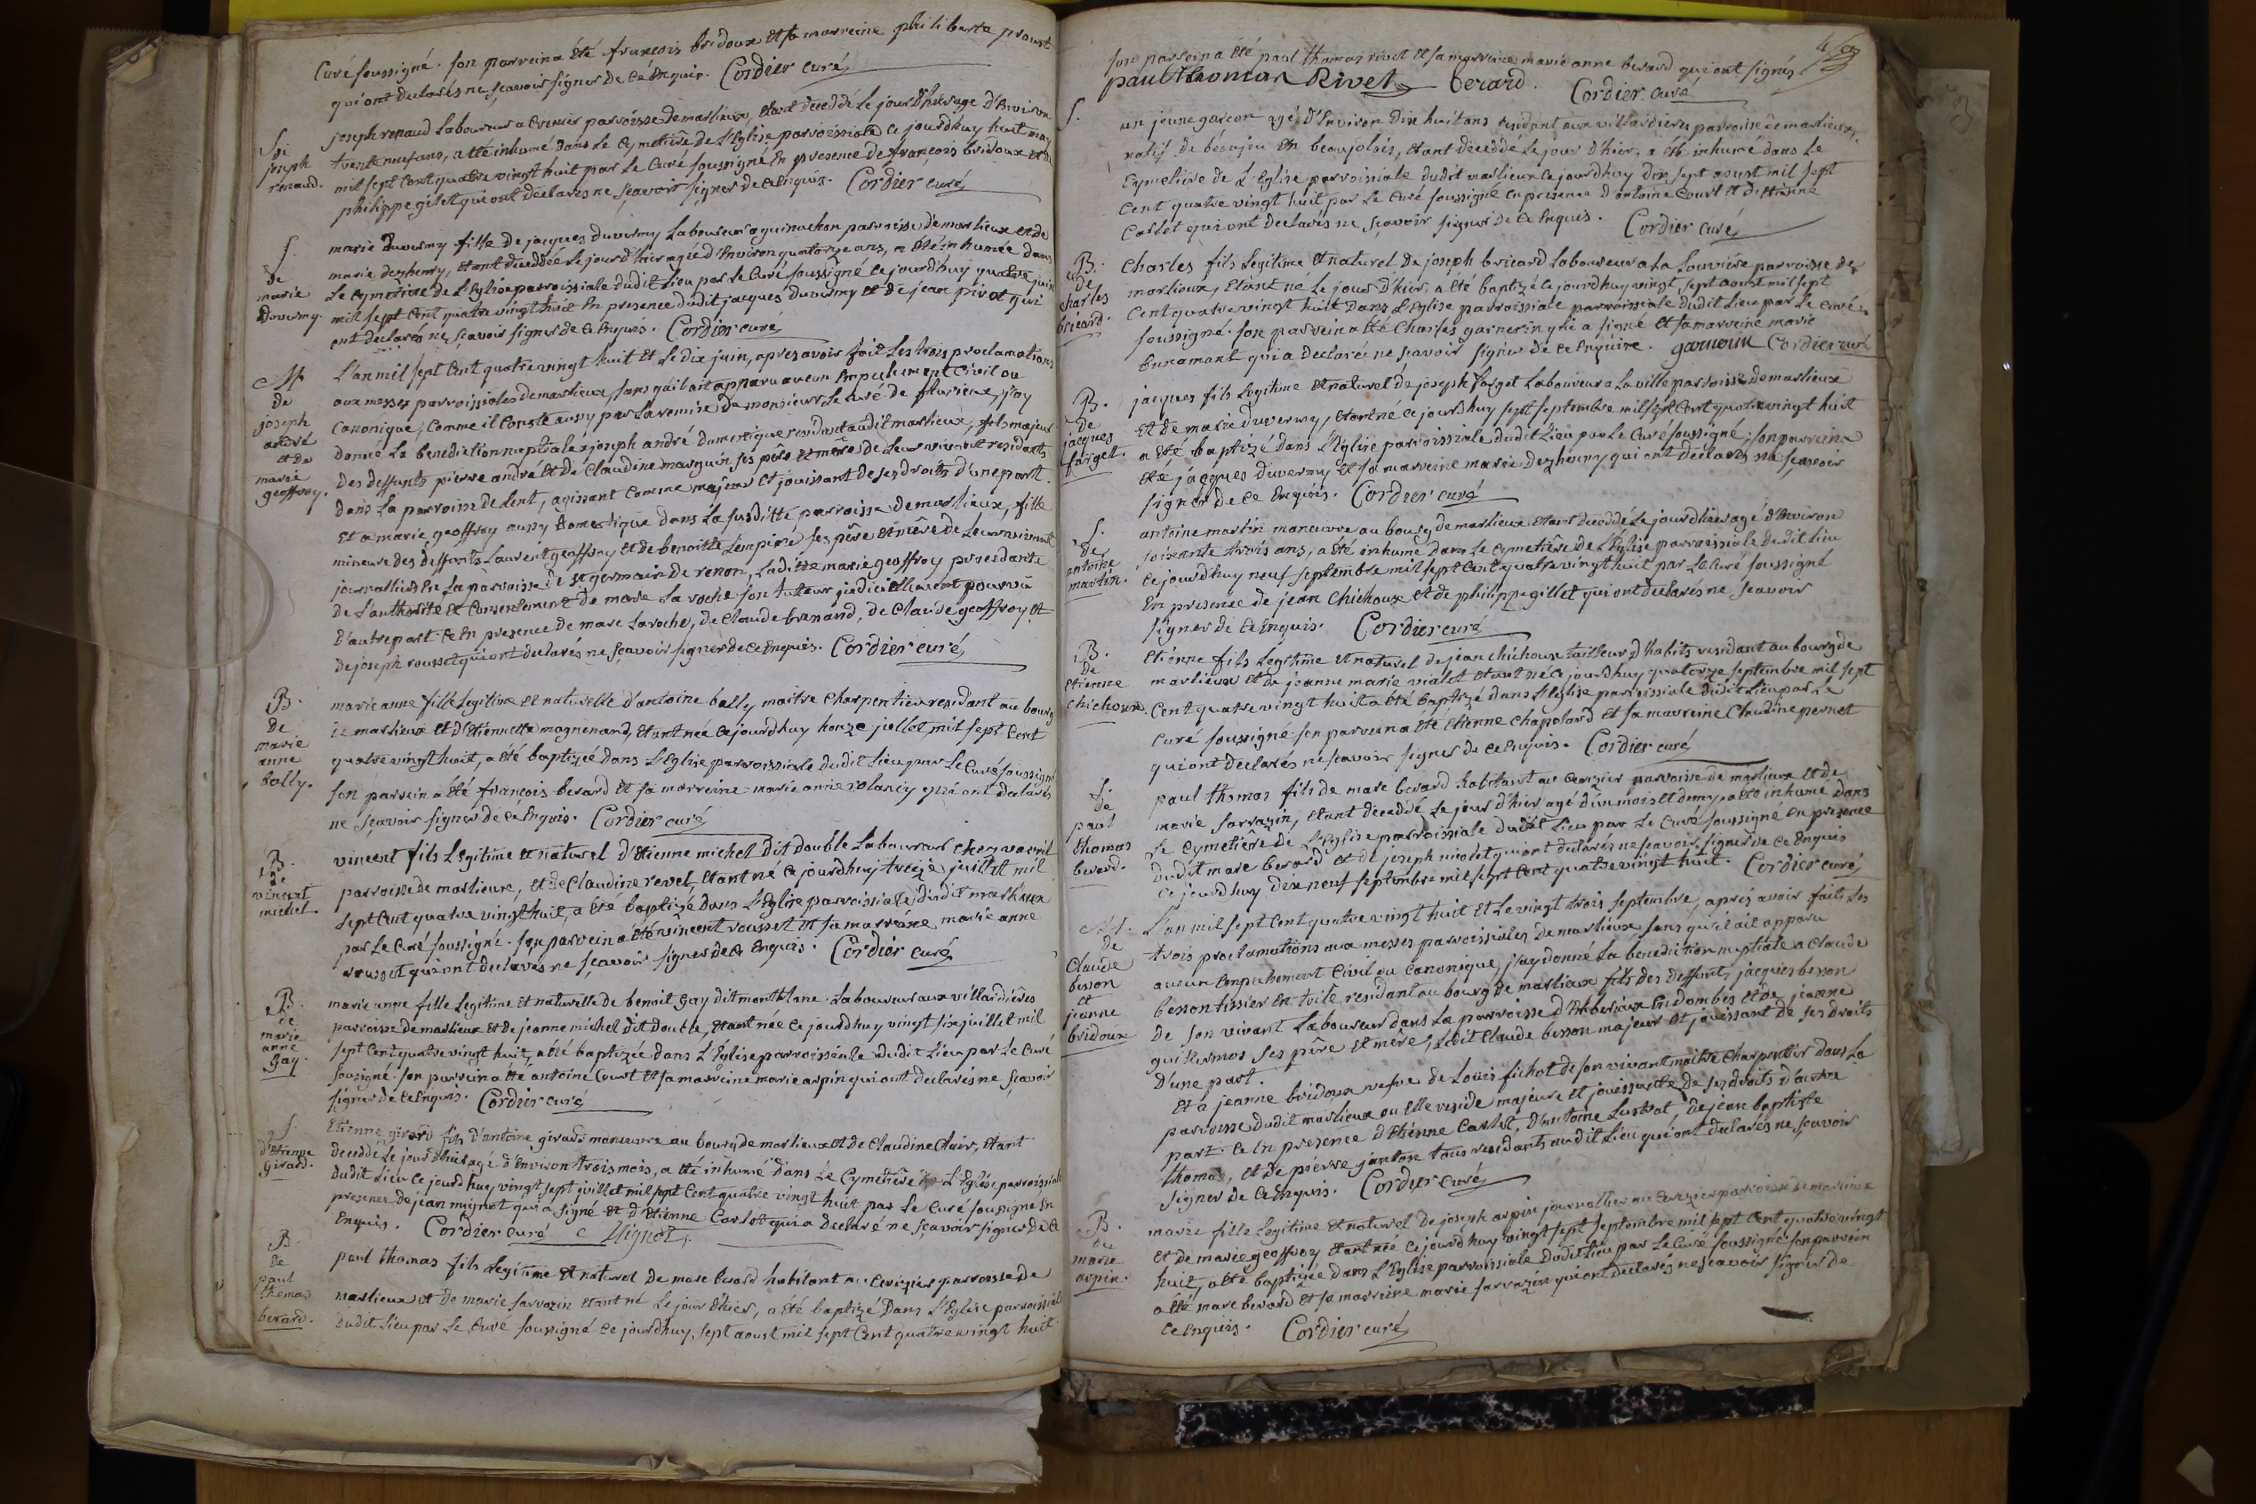 Curé soussigné. son parrein a été françois bridoux et sa marreine philiberte proust
qui ont declarés ne sçavoir signer de ce enquis. Cordier curé
S. de joseph renaud.
joseph renaud Laboureur a parroisse de marlieux, etant decedé le jour d'hier agé d'environ
trente neuf ans, a été inhumé dans le Cymetiere de L'Eglise parroissiale ce jourd'huy huit mai
mil sept Cent quatre vingt huit par le Curé soussigné En presence de françois bridoux et de
philippe gilet qui ont declarés ne sçavoir signer de ce enquis. Cordier curé
S. de marie Duvermy.
marie Duvermy fille de jacques duvermy Laboureur a parroisse de marlieux et de
marie dezhenry, etant decedée le jour d'hier agée d'Environ quatorze ans, a été inhumée dans
Le Cymetiere de L'Eglise parroissiale dudit Lieu par le Curé soussigné ce jourd'huy quatre juin
mil sept Cent quatre vingt huit En presence dudit jacques duvermy et de jean pivot qui
ont declarés ne sçavoir signer de ce Enquis. Cordier curé
M. de joseph andré et de marie geoffroy.
L'an mil sept Cent quatre vingt huit et Le dix juin, apres avoir fait Les trois proclamations
aux messes parroissiales de marlieux sans qu'il ait apparu aucun Empechement Civil ou
Canonique, Comme il Conste aussy par La remise de monsieur Le Curé de j'ay
donné La benediction nuptiale a joseph andré domestique residant audit marlieux, fils majeur
des deffunts pierre andré et de Claudine marguin ses pere et mere de Leur vivant residants
dans La parroisse de Lent, agissant Comme majeur et jouissant de ses droits d'une part.
Et a marie geoffroy aussy domestique dans La susditte parroisse de marlieux, fille
mineure des deffunts Laurent geoffroy et de benoitte Lempire ses père et mère de Leur vivant
journalliers En La parroisse de st germain de renon, Laditte marie geoffroy procedante
de L'authorité et Consentement de marc La roche son tuteur judiciellement pourvû
D'autre part. Ce En presence de marc Laroche, de Claude brunand, de Claude geoffroy et
de joseph rousset qui ont declarés ne sçavoir signer de ce enquis. Cordier curé
B. de marie anne bally.
marie anne fille Legitime et naturelle d'antoine bally maitre Charpentier residant au bourg
de marlieux et d'Etiennette magnenand, Etant née ce jourd'huy honze juillet mil sept Cent
quatre vingt huit, a été baptizée dans L'Eglise parroissiale dudit Lieu par Le Curé soussigné
son parrein a été françois berard et sa marreine marie anne rolancy qui ont declarés
ne sçavoir signer de ce Enquis. Cordier curé
B. de vincent michel.
vincent fils Legitime et naturel d'Etienne michel dit double Laboureur
parroisse de marlieux, et de Claudine revel, Etant né ce jourd'huy treize juillet mil
sept Cent quatre vingt huit, a été baptizé dans L'Eglise parroissiale dudit marlieux
par Le Curé soussigné. son parrein a été vincent rousset et sa marreine marie anne
rousset qui ont declarés ne sçavoir signer de ce Enquis. Cordier curé
B. de marie anne gay.
marie anne fille Legitime et naturelle de benoit gay dit montblanc Laboureur aux villardières
parroisse de marlieux et de jeanne michel dit double, Etant née ce jourd'huy vingt six juillet mil
sept Cent quatre vingt huit, a été baptizée dans L'Eglise parroissiale dudit Lieu par Le Curé
soussigné. son parrein a été antoine Court et sa marreine marie arpin qui ont declarés ne sçavoir
signer de ce Enquis. Cordier curé
S. d'Etienne girard.
Etienne girard fils d'antoine girard manoeuvre au bourg de marlieux et de Claudine Clair, Etant
decedé Le jour d'hier agé d'Environ trois mois, a été inhumé dans Le Cymetiere de L'Eglise parroissiale
dudit Lieu ce jourd'huy vingt sept juillet mil sept Cent quatre vingt huit par Le Curé soussigné En
presence de jean mignot qui a signé et d'Etienne Carlot qui a declaré ne sçavoir signer de ce
Enquis. Cordier curé Mignot.
B. de paul thomas berard.
paul thomas fils Legitime et naturel de marc berard habitant au Cerizier parroisse de
marlieux et de marie sarrazin etant né Le jour d'hier, a été baptizé dans L'Eglise parroissiale
dudit Lieu par Le Curé soussigné ce jourd'huy sept aoust mil sept Cent quatre vingt huit
son parrein a été paul thomas rivet et sa marreine marie anne berard qui ont signés
paul thomas Rivet berard. Cordier curé
S.
un jeune garçon agé d'Environ dix huit ans residant aux villardieres parroisse de marlieux,
natif de beaujeu En beaujolois, etant decedé Le jour d'hier, a été inhumé dans Le
Cymetiere de L'Eglise parroissiale dudit marlieux ce jourd'huy dix sept aoust mil sept
Cent quatre vingt huit par Le Curé soussigné En presence d'antoine Court et d'Etienne
Carlot qui ont declarés ne sçavoir signer de ce Enquis. Cordier curé
B. de charles bricard.
Charles fils Legitime et naturel de joseph bricard Laboureur a La Louviere parroisse de
marlieux, Etant né Le jour d'hier, a été baptizé ce jourd'huy vingt sept aoust mil sept
Cent quatre vingt huit dans L'Eglise parroissiale parroissiale dudit Lieu par Le Curé
soussigné. son parrein a été Charles garnerin qui a signé et sa marreine marie
bonamant qui a declaré ne sçavoir signer de ce Enquise. garnerin Cordier curé
B. de jacques farget.
jacques fils Legitime et naturel de joseph farget Laboureur a La ville parroisse de marlieux
et de marie duvermy, Etant né ce jourd'huy sept septembre mil sept Cent quatre vingt huit
a été baptizé dans L'Eglise parroissiale dudit Lieu par Le Curé soussigné; son parrein a
été jacques duvermy et sa marreine marie dezhenry qui ont declarés ne sçavoir
signer de ce Enquis. Cordier curé
S. de antoine martin.
antoine martin manoeuvre au bourg de marlieux etant decedé Le jour d'hier agé d'Environ
soixante trois ans, a été inhumé dans Le Cymetière de L'Eglise parroissiale dudit Lieu
ce jourd'huy neuf septembre mil sept Cent quatre vingt huit par Le Curé soussigné
En presence de jean Chichoux et de philippe gillet qui ont declarés ne sçavoir
signer de ce Enquis. Cordier curé
B. de Etienne chichoux.
Etienne fils Legitime et naturel de jean chichoux tailleur d'habits residant au bourg de
marlieux et de jeanne marie vialet etant né ce jourd'huy quatorze septembre mil sept
Cent quatre vingt huit a été baptizé dans L'Eglise parroissiale dudit Lieu par Le
Curé soussigné son parrein a été Etienne Chapolard et sa marreine Claudine pernet
qui ont declarés ne sçavoir signer de ce Enquis. Cordier curé
S. de paul thomas berard.
paul thomas fils de marc berard habitant au Cerizier parroisse de marlieux et de
marie sarrazin, etant decedé Le jour d'hier agé d'un mois et demy a été inhumé dans
Le Cymetière de L'Eglise parroissiale dudit Lieu par Le Curé soussigné En presence
dudit marc berard et de joseph nicolet qui ont declarés ne sçavoir signer de ce Enquis
Ce jourd'huy dix neuf septembre mil sept Cent quatre vingt huit. Cordier curé
M. de Claude besson et jeanne bridoux
L'an mil sept Cent quatre vingt huit et Le vingt trois septembre, apres avoir faits Les
trois proclamations aux messes parroissiales de marlieux sans qu'il ait apparu
aucun Empechement Civil ou Canonique, j'ay donné La benediction nuptiale a Claude
besson tissier En toile residant au bourg de marlieux fils des deffunts jacques besson
de son vivant Laboureur dans La parroisse d'Amberieux En dombes et de jeanne
guillermos ses père et mère, Ledit Claude besson majeur et jouissant de ses droits
d'une part.
Et a jeanne bridoux vefve de Louis fichot de son vivant maitre Charpentier dans La
parroisse dudit marlieux ou Elle reside majeure et jouissante de ses droits d'autre
part. Ce En presence d'Etienne Carlot, d'antoine Lustrat, de jean baptiste
thomas, et de pierre janton tous residants audit Lieu qui ont declarés ne sçavoir
signer de ce Enquis. Cordier curé
B. de marie arpin.
marie fille Legitime et naturel de joseph arpin journallier au Cerizier parroisse de marlieux
et de marie geoffroy etant née ce jourd'huy vingt sept septembre mil sept Cent quatre vingt
huit, a été baptizée dans L'Eglise parroissiale dudit Lieu par Le Curé soussigné son parrein
a été marc berard et sa marreine marie sarrazin qui ont declarés ne sçavoir signer de
ce Enquis. Cordier curé